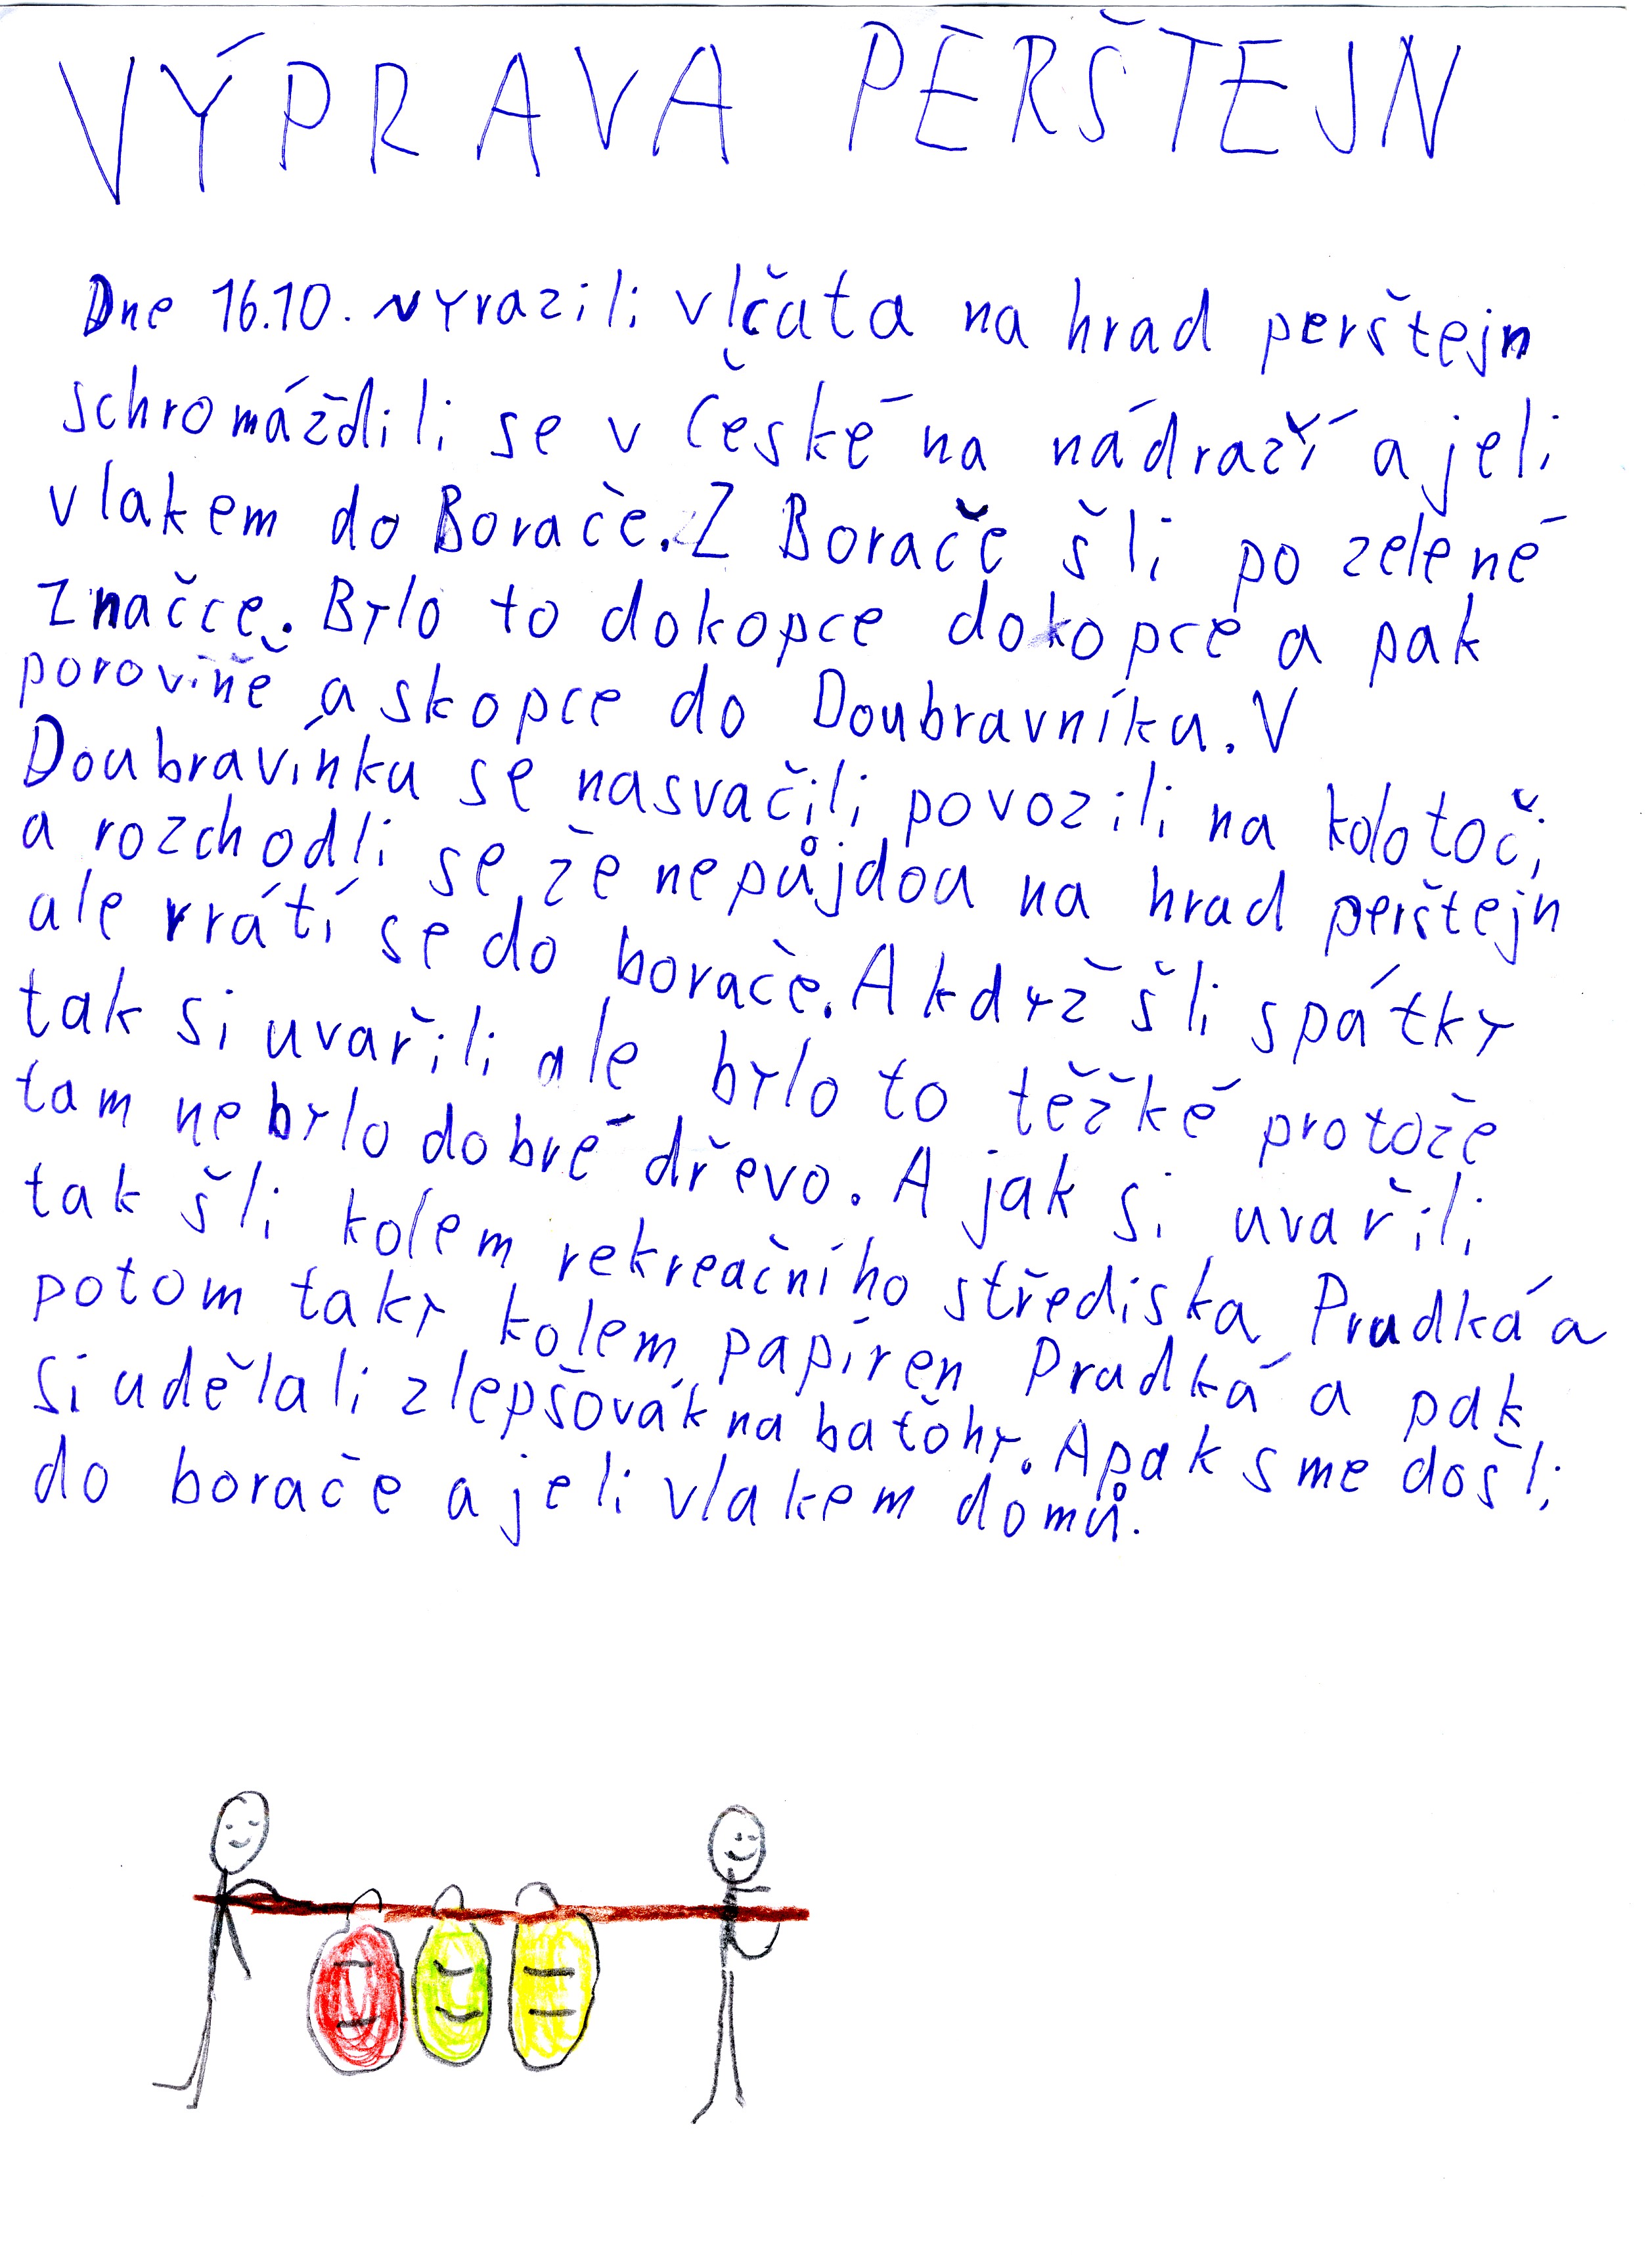 VÝPRAVA PERŠTEJN
Dne 16.10. vyrazili vlčata na hrad perštejn
schromáždili se v České na nádraží a jeli
vlakem do Borače. Z Borače šli po zelené
značce. Bylo to dokopce dokopce a pak
porovině a skopce do Doubravníku. V
Doubravínku se nasvačili povozili na kolotoči
a rozchodli se že nepůjdou na hrad perštejn
ale vrátí se do borače. A když šli spátky
tak si uvařili ale bylo to těžké protože
tam nebylo dobré dřevo. A jak si uvařili
tak šli kolem rekreačního střediska Prudká a
potom taky kolem papíren Prudká a pak
si udělali zlepšovák na baťohy. A pak sme došli
do borače a jeli vlakem domů.